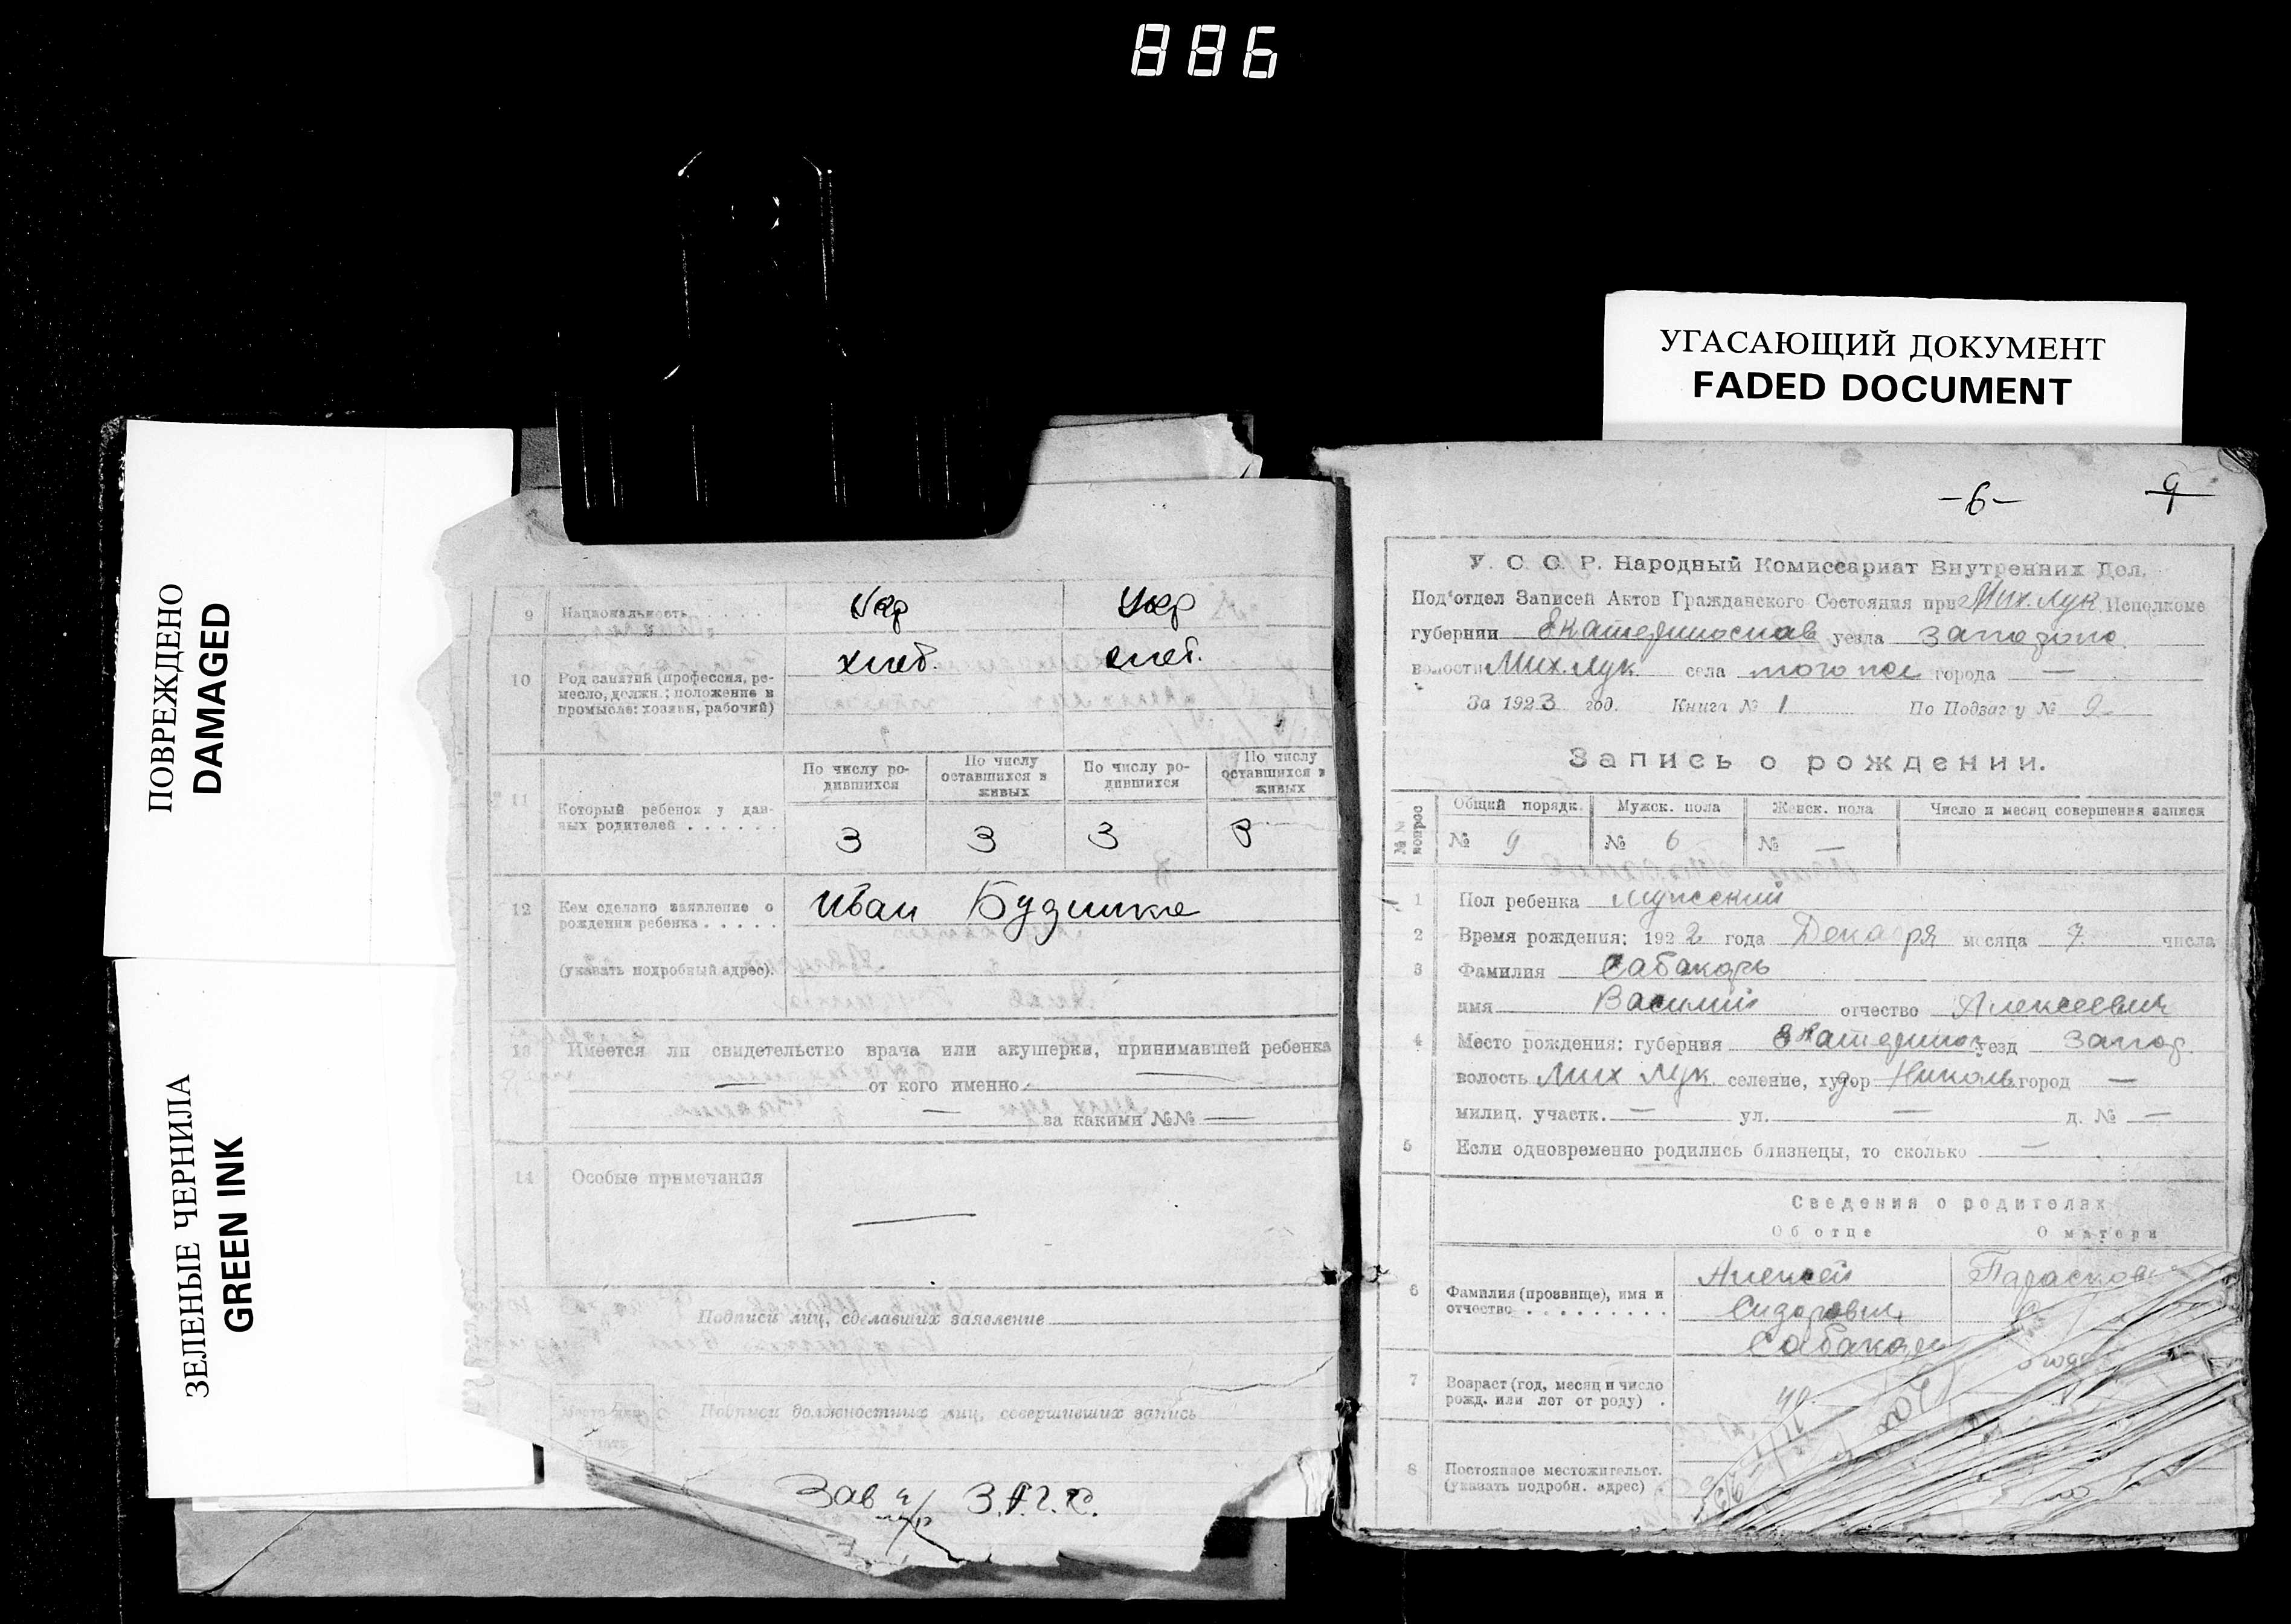 886
ПОВРЕЖДЕНО
DAMAGED
ЗЕЛЕНЫЕ ЧЕРНИЛА
GREEN INK
УГАСАЮЩИЙ ДОКУМЕНТ
FADED DOCUMENT
9 Национальность . . . . Укр Укр
10 Род занятий (профессия, ре-
месло, должн.; положение в
промысле: хозяин, рабочий)
хлеб.
По числу ро-
дившихся
По числу
оставшихся в
живых
По числу ро-
дившихся
По числу
оставшихся в
живых
11 Который ребенок у дан-
ных родителей . . . . . .
3 3 3 3
12 Кем сделано заявление о
рождении ребенка . . . . .
Иван
(указать подробный адрес).
13 Имеется ли свидетельство врача или акушерки, принимавшей ребенка
— от кого именно —
— за какими №№ —
14 Особые примечания —
Подписи лиц, сделавших заявление
Подписи должностных лиц, совершивших запись
Зав З.А.Г.С.
-6- 9
У. С. С. Р. Народный Комиссариат Внутренних Дел.
Под'отдел Записей Актов Гражданского Состояния при Мих. Лук Исполкоме
губернии Екатеринослав уезда Запорож.
волости Мих. Лук. села того же города —
За 1923 год. Книга № 1 По Подзагу № 9
Запись о рождении.
№№ вопрос
Общий порядк. Мужск. пола Женск. пола Число и месяц совершения записи
№ 9 № 6 № —
1 Пол ребенка мужеский
2 Время рождения: 1922 года Декабря месяца 7 числа
3 Фамилия Сабакарь
имя Василий отчество Алексеевич
4 Место рождения: губерния Екатеринос уезд Запор.
волость Мих Лук. селение, хутор Николь. город —
милиц. участк. — ул. — д. № —
5 Если одновременно родились близнецы, то сколько —
Сведения о родителях
Об отце О матери
6 Фамилия (прозвище), имя и
отчество . . . . . . . . .
Алексей
Сидорович
Сабакарь
Парасков
7 Возраст (год, месяц и число
рожд. или лет от роду) .
40
8 Постоянное местожительст.
(указать подробн. адрес) .